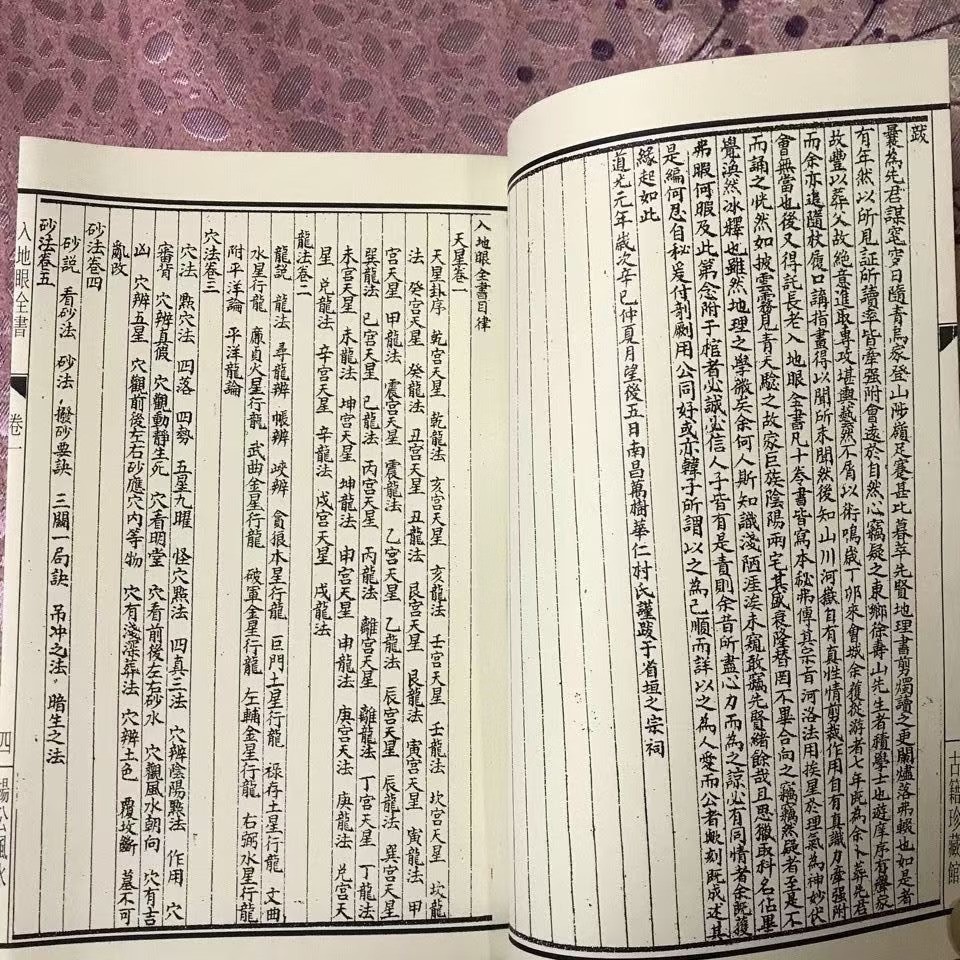 跋
曩為先君謀窀穸日隨青烏家登山陟嶺足蹇甚比暮萃先賢地理書剪燭讀之更闌燼落弗輟也如是者
有年然以所見証所讀率皆牽強附會遠於自然心竊疑之東鄉徐壽山先生者積學士也遊庠序有聲家
故豐以葬父故絕意進取專攻堪輿藝然不屑以術鳴歲丁卯來會城余獲從游者七年既為余卜葬先君
而余亦追隨杖履口講指畫得以聞所未聞然後知山川河嶽自有真性情剪裁作用自有真識力牽強附
會無當也後又得託長老入地眼全書凡十卷書皆寫本秘弗傳其宗旨河洛法用挨星於理氣為神妙伏
而誦之恍然如披雲霧見青天驗之故家巨族陰陽兩宅其盛衰隆替罔不畢合向之竊竊然疑者至是不
覺渙然冰釋也雖然地理之學微矣余何人斯知識淺陋涯涘未窺敢竊先賢緒餘哉且思獵取科名佔畢
弗暇何暇及此第念附于棺者必誠必信人子皆有是責則余昔所盡心力而為之諒必有同情者余既獲
是編何忍自秘爰付剞劂用公同好或亦韓子所謂以之為己順而詳以之為人愛而公者歟刻既成述其
緣起如此
道光元年歲次辛巳仲夏月望後五日南昌萬樹華仁村氏謹跋于省垣之宗祠
古籍珍藏館
入地眼全書目律
天星卷一
天星卦序 乾宮天星 乾龍法 亥宮天星 亥龍法 壬宮天星 壬龍法 坎宮天星 坎龍
法 癸宮天星 癸龍法 丑宮天星 丑龍法 艮宮天星 艮龍法 寅宮天星 寅龍法 甲
宮天星 甲龍法 震宮天星 震龍法 乙宮天星 乙龍法 辰宮天星 辰龍法 巽宮天星
巽龍法 巳宮天星 巳龍法 丙宮天星 丙龍法 離宮天星 離龍法 丁宮天星 丁龍法
未宮天星 未龍法 坤宮天星 坤龍法 申宮天星 申龍法 庚宮天法 庚龍法 兌宮天
星 兌龍法 辛宮天星 辛龍法 戌宮天星 戌龍法
龍法卷二
龍說 龍法 尋龍辨 帳辨 峽辨 貪狼木星行龍 巨門土星行龍 祿存土星行龍 文曲
水星行龍 廉貞火星行龍 武曲金星行龍 破軍金星行龍 左輔金星行龍 右弼水星行龍
附平洋論 平洋龍論
穴法卷三
穴法 點穴法 四落 四勢 五星九曜 怪穴點法 四真三法 穴辨陰陽點法 作用 穴
審背 穴辨真假 穴觀動靜生死 穴看明堂 穴看前後左右砂水 穴觀風水朝向 穴有吉
凶 穴辨五星 穴觀前後左右砂應穴內等物 穴有淺深葬法 穴辨土色 覆墳斷 墓不可
亂改
砂法卷四
砂說 看砂法 砂法 撥砂要訣 三關一局訣 吊冲之法 暗生之法
砂法卷五
入地眼全書
卷一
四
楊公風水